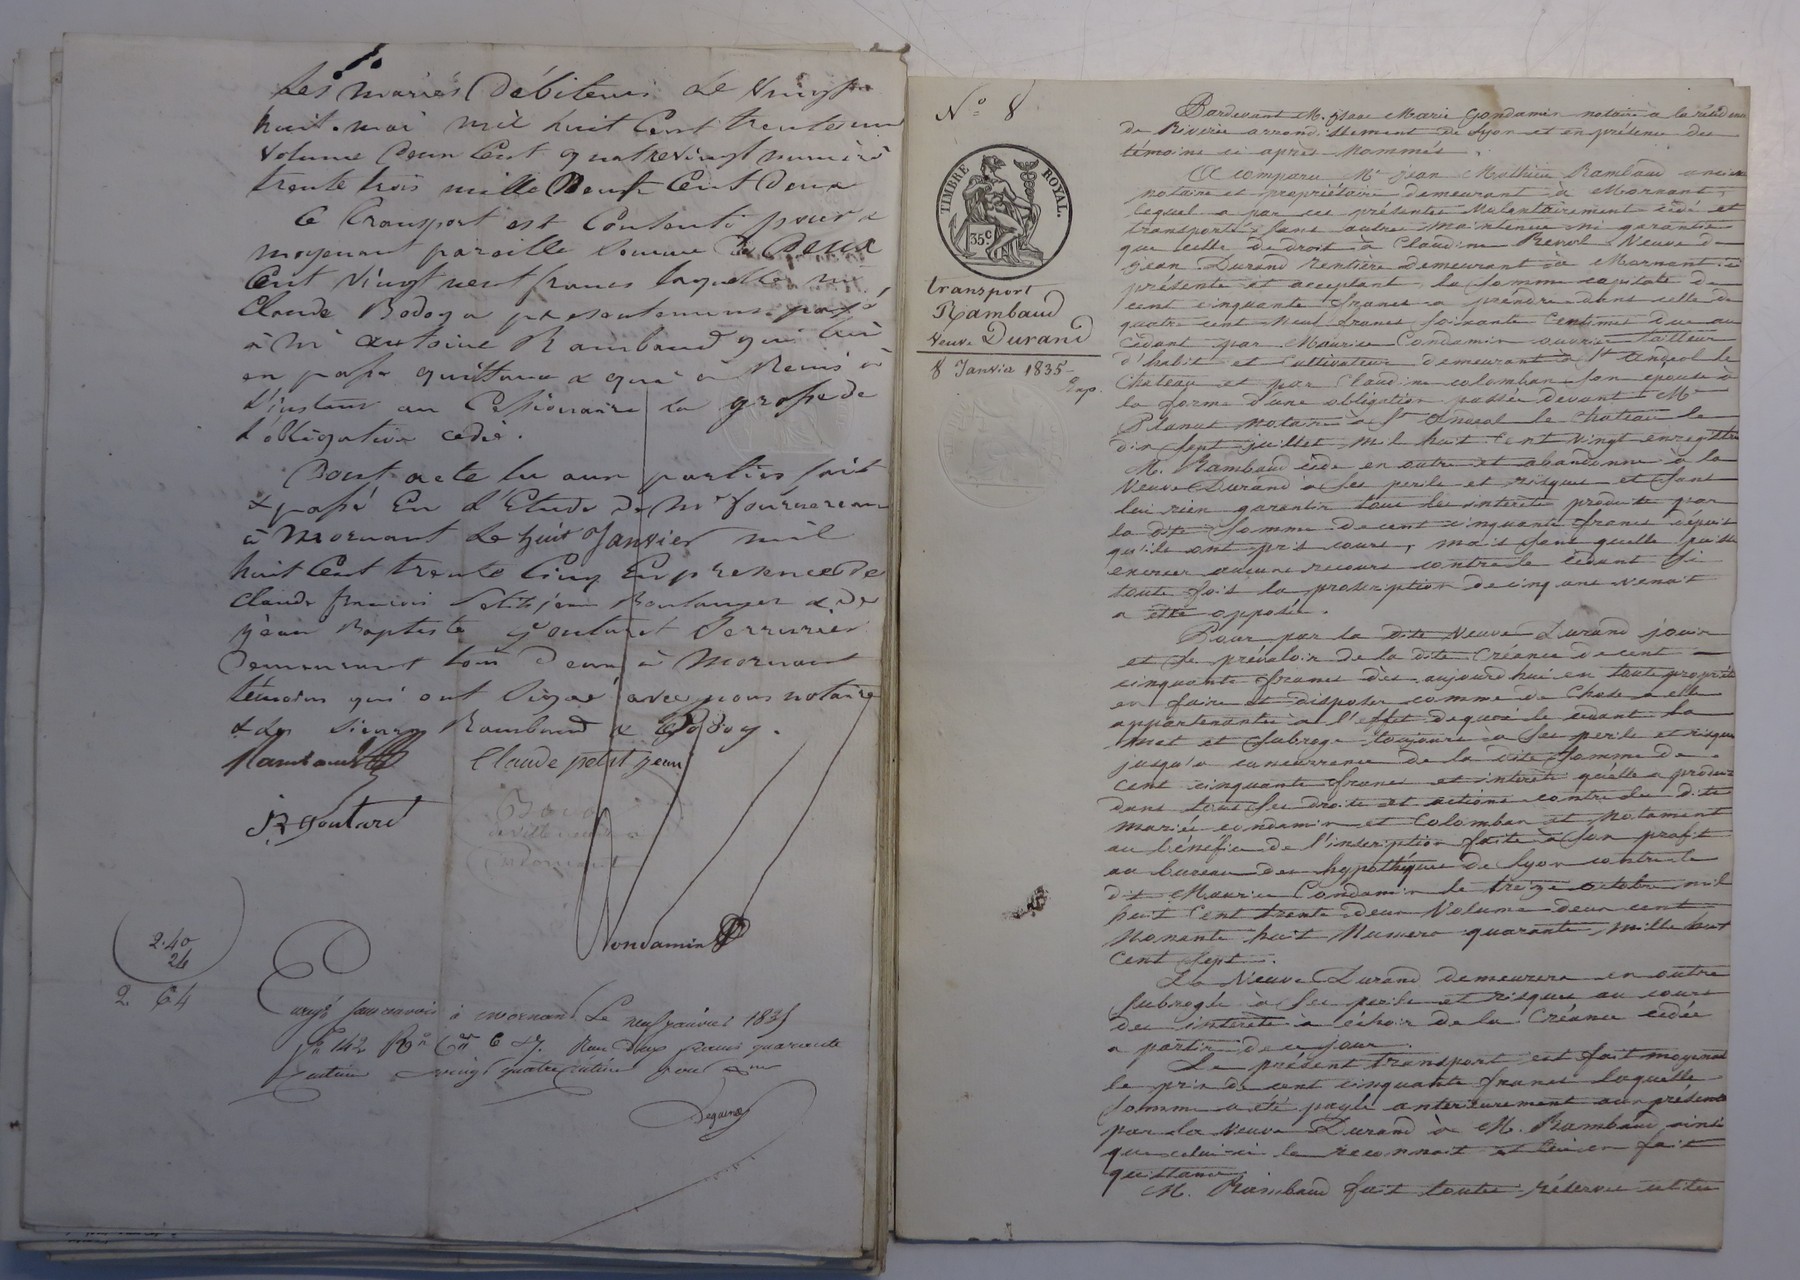 Les mariés Débiteurs Le vingt
huit mai mil huit Cent trente un
volume Deux Cent quatrevingt numéro
trente trois mille Neuf Cent Deux
Ce Transport est Consenti pour &
moyennant pareille Somme De Deux
Cent vingt neuf francs laquelle
Claude Bodoy a présentement payé
à Mr antoine Rambaud qui lui
en passe quittance & qui a Remis à
L'instant au Cessionnaire la grosse de
L'obligation cédée.
Dont acte lu aux parties fait
& passé En L'Etude De Mr Fournereau
à Mornant Le huit Janvier mil
huit Cent trente Cinq En présence De
Claude françois Petitjean Boulanger & De
jean Baptiste Goutaret Serrurier
Demeurant tous Deux à Mornant
témoins qui ont Signé avec nous notaire
& les Sieurs Rambaud & Bodoy.
Rambaud Claude petit jean
JB Goutaret
Condamin
2.40
24
2. 64
Enregé à mornant Le neuf janvier 1835
fo 142 Ro Ce 6 & 7. Reçu deux francs quarante
centimes vingt quatre centimes pour
No 8
TIMBRE ROYAL.
35c
transport
Rambaud
veuve Durand
8 Janvier 1835
Exp.
Pardevant Me Isaac Marie Condamin notaire à la résidence
de Riverie arrondissement de Lyon et en présence des
témoins ci après Nommés.
A comparu Mr Jean Mathieu Rambaud ancien
notaire et propriétaire demeurant à Mornant,
lequel a par ces présentes volontairement cédé et
transporté sans autre maintenue ni garantie
que celle de droit à Claudine Revol Veuve de
jean Durand rentière demeurant à Mornant ici
présente et acceptant, la Somme capitale de
cent cinquante francs à prendre dans celle de
quatre cent Neuf francs soixante Centimes due au
cédant par Maurice Condamin ouvrier tailleur
d'habit et Cultivateur demeurant à St Andéol le
Château et par Claudine colomban son épouse à
la forme d'une obligation passée devant Me
Planut Notaire à St Andéol le Château le
dix Sept juillet mil huit Cent vingt enregistrée
M. Rambaud cède en outre et abandonne à la
Veuve Durand à Ses perils et risques et Sans
lui rien garantir tous les intérêts produits par
la dite Somme de cent cinquante francs depuis
qu'ils ont pris cours, mais sans quelle puisse
exercer aucun recours contre le cédant Si
toute fois la prescription de cinq ans venait
a être opposée.
Pour par la dite Veuve Durand jouir
et se prévaloir de la dite Créance de cent
cinquante francs dès aujourd'hui en toute propriété
en faire et disposer comme de Chose à elle
appartenante à l'effet de quoi le cédant la
met et Subroge toujours à Ses perils et risques
jusqu'à concurrence de la dite Somme de
cent cinquante francs et intérêts quelle a produit
dans tous Ses droits et actions contre les dits
mariés condamin et Colomban et Notament
au bénéfice de l'inscription faite à Son profit
au bureau des hypothèques de Lyon contre le
dit Maurice Condamin le treize octobre mil
huit Cent trente deux Volume deux cent
Nonante huit Numero quarante mille huit
Cent Sept.
La Veuve Durand demeurera en outre
Subrogée à Ses perils et risques au cours
des intérêts à échoir de la Créance cédée
a partir de ce jour.
Le présent transport est fait moyennant
le prix de cent cinquante francs laquelle
Somme a été payée antérieurement aux présentes
par la Veuve Durand à M. Rambaud ainsi
que celui ci le reconnait et lui en fait
quittance
M. Rambaud fait toutes réserves utiles